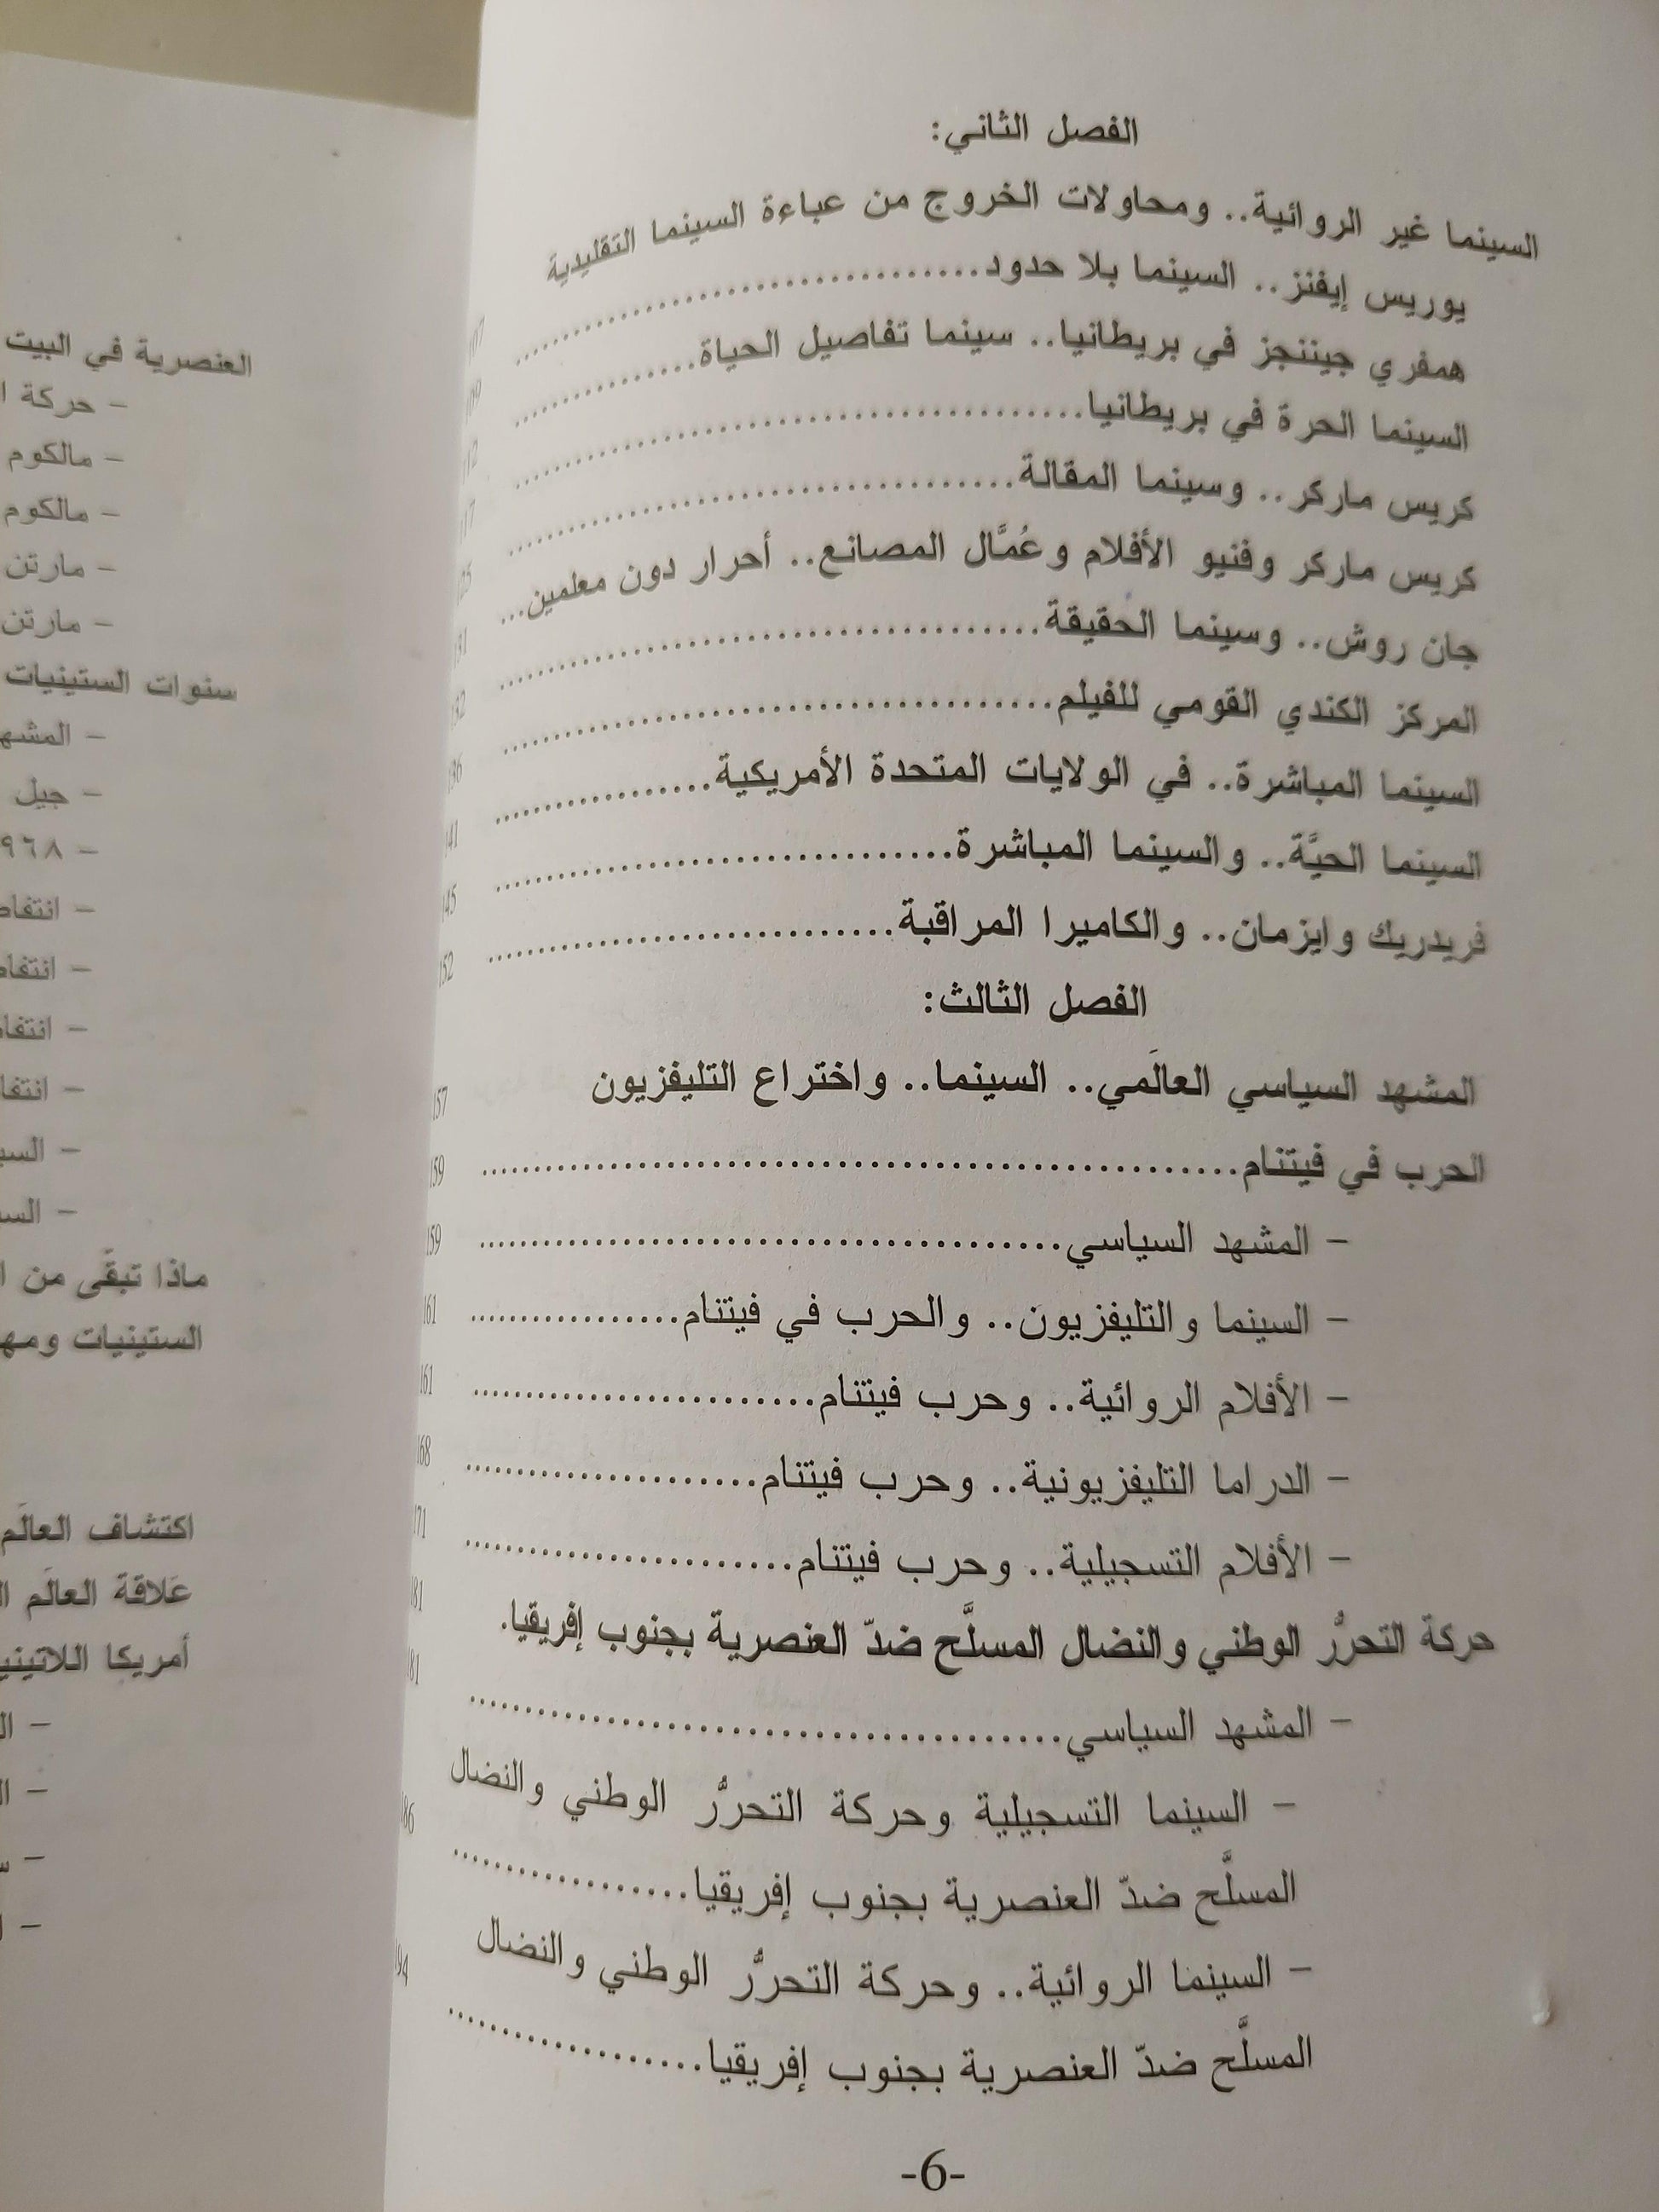 الفصل الثاني:
السينما غير الروائية.. ومحاولات الخروج من عباءة السينما التقليدية 107
يوريس إيفنز.. السينما بلا حدود 109
همفري جيننجز في بريطانيا.. سينما تفاصيل الحياة 112
السينما الحرة في بريطانيا 117
كريس ماركر.. وسينما المقالة 125
كريس ماركر وفنيو الأفلام وعُمَّال المصانع.. أحرار دون معلمين... 131
جان روش.. وسينما الحقيقة 132
المركز الكندي القومي للفيلم 136
السينما المباشرة.. في الولايات المتحدة الأمريكية 141
السينما الحيَّة.. والسينما المباشرة 145
فريدريك وايزمان.. والكاميرا المراقبة 152
الفصل الثالث:
المشهد السياسي العالَمي.. السينما.. واختراع التليفزيون 157
الحرب في فيتنام 159
– المشهد السياسي 159
– السينما والتليفزيون.. والحرب في فيتنام 161
– الأفلام الروائية.. وحرب فيتنام 161
– الدراما التليفزيونية.. وحرب فيتنام 168
– الأفلام التسجيلية.. وحرب فيتنام 171
حركة التحرُّر الوطني والنضال المسلَّح ضدّ العنصرية بجنوب إفريقيا. 181
– المشهد السياسي 181
– السينما التسجيلية وحركة التحرُّر الوطني والنضال
المسلَّح ضدّ العنصرية بجنوب إفريقيا 186
– السينما الروائية.. وحركة التحرُّر الوطني والنضال
المسلَّح ضدّ العنصرية بجنوب إفريقيا 194
-6-
العنصرية في البيت
– حركة
– مالكوم
– مالكوم
– مارتن
– مارتن
سنوات الستينيات
– جيل
ماذا تبقّى من
الستينيات
اكتشاف العالَم
عَلاقة العالَم
أمريكا